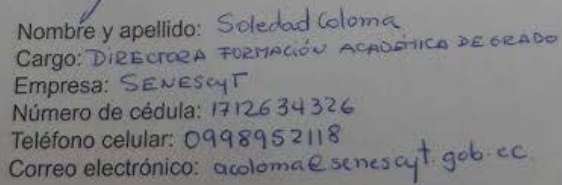 Nombre y apellido: Soledad Coloma
Cargo: DIRECTORA FORMACIÓN ACADÉMICA DE GRADO
Empresa: SENESCyT
Número de cédula: 1712634326
Teléfono celular: 0998952118
Correo electrónico: acoloma@senescyt.gob.ec